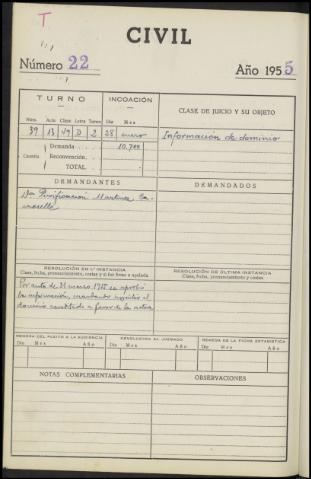 T
CIVIL
Número 22
Año 1955
TURNO
INCOACIÓN
CLASE DE JUICIO Y SU OBJETO
Núm. Año Clase Letra Turno Día Mes
39 13 D 2 28 enero
Información de dominio
Demanda 10.700
Cuantía Reconvención.
TOTAL.
DEMANDANTES
DEMANDADOS
Dña Purificación Martínez
RESOLUCIÓN EN 1.ª INSTANCIA
Clase, fecha, pronunciamiento, costas y si fué firme o apelada
RESOLUCIÓN DE ÚLTIMA INSTANCIA
Clase, fecha, pronunciamiento y costas
Por auto de 31 marzo 1955 se aprobó
la información, mandando inscribir el
dominio a favor de la actora
REMESA DEL PLEITO A LA AUDIENCIA
DEVOLUCIÓN AL JUZGADO
REMESA DE LA FICHA ESTADÍSTICA
Día Mes Año
Día Mes Año
Día Mes Año
NOTAS COMPLEMENTARIAS
OBSERVACIONES